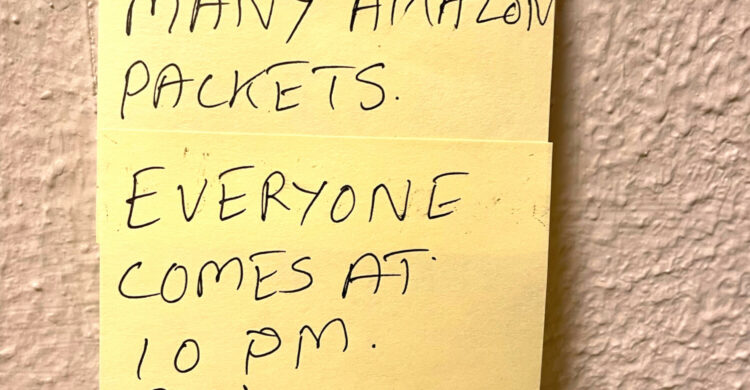 MANY AMAZON
PACKETS.
EVERYONE
COMES AT
10 PM.